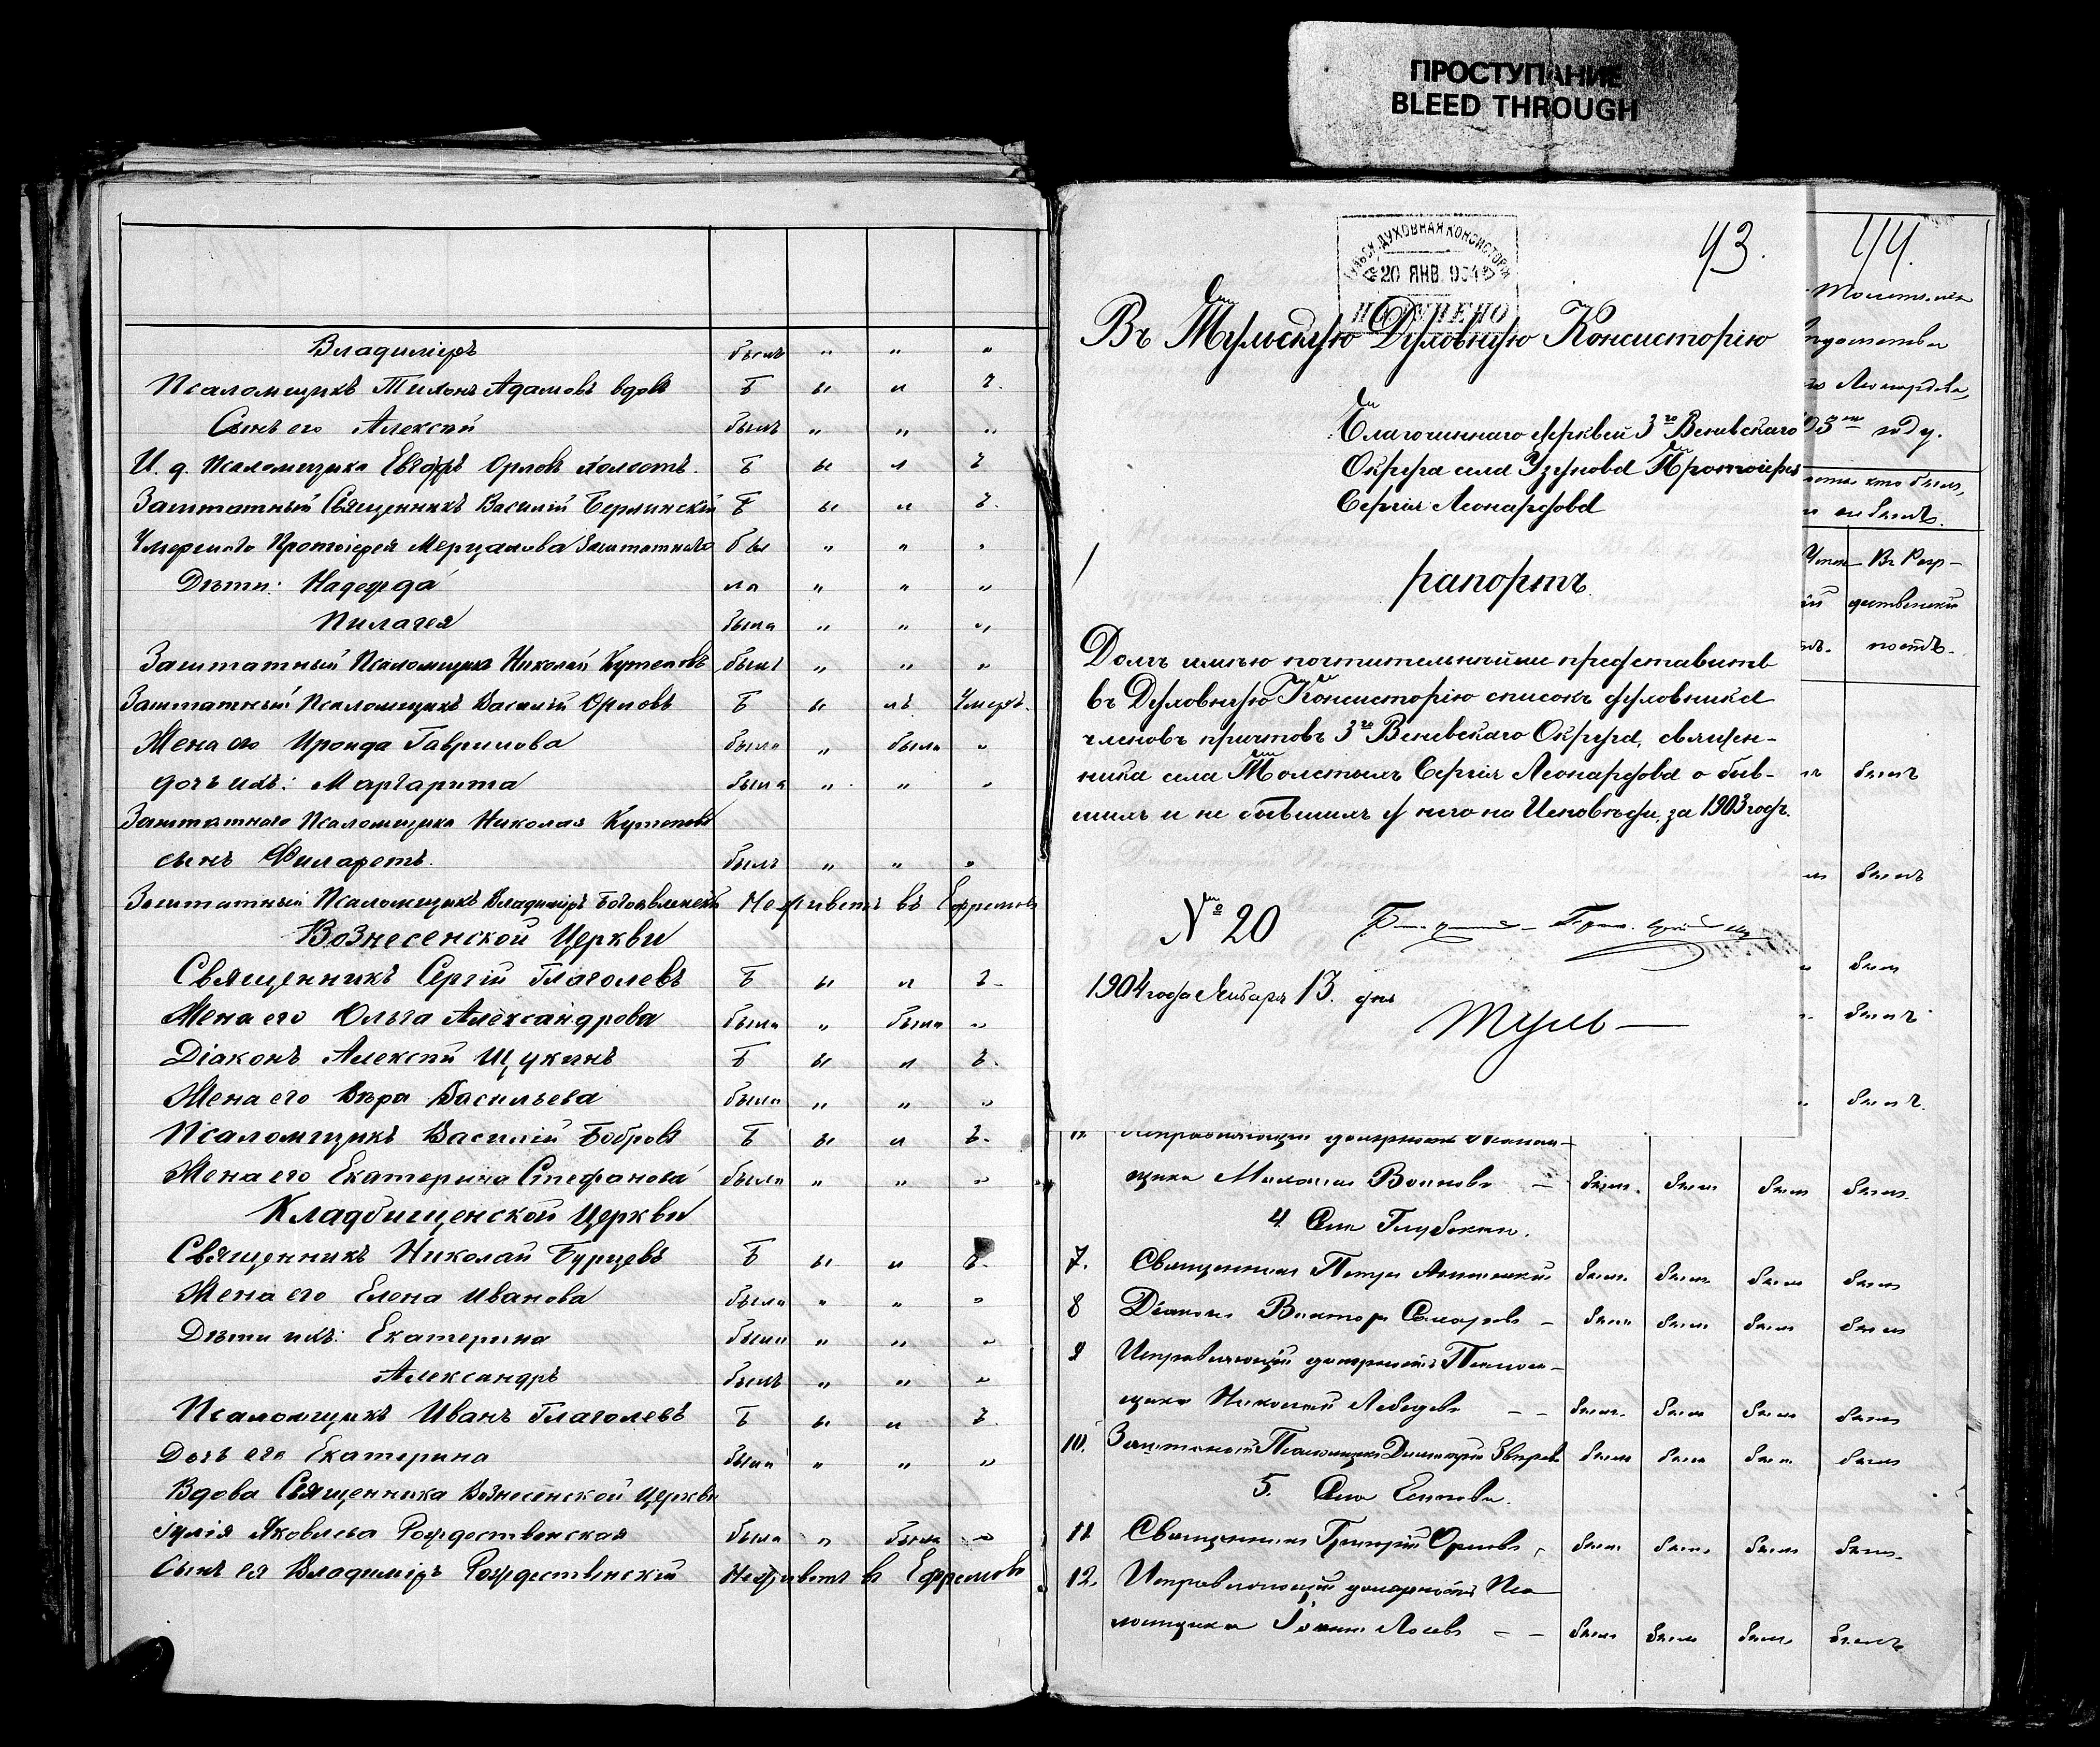 ПРОСТУПАНИЕ
BLEED THROUGH
Владиміръ былъ " " "
Псаломщикъ Тихонъ Адамовъ вдовъ Б ы л ъ.
Сынъ его Алексій былъ " " "
И. д. Псаломщика Орловъ холостъ. Б ы л ъ
Заштатный Священникъ Василій Берлинскій Б ы л ъ.
Умершаго Протоіерея Мерцалова Заштатнаго бы " " "
Дѣти: Надежда ла " " "
Пилагея была " " "
Заштатный Псаломщикъ Николай Кутеповъ былъ " " "
Заштатный Псаломщикъ Василій Орловъ Б ы лъ Умеръ.
Жена его Ироида Гаврилова была " была "
дочь ихъ: Маргарита была " " "
Заштатнаго Псаломщика Николая Кутепова
сынъ Филаретъ. былъ " " "
Заштатный Псаломщикъ Владиміръ Богоявленскій Не живетъ въ Ефремовѣ
Вознесенской Церкви
Священникъ Сергій Глаголевъ Б ы л ъ
Жена его Ольга Александрова была " была "
Діаконъ Алексій Щукинъ Б ы л ъ.
Жена его Вѣра Васильева была " " "
Псаломщикъ Василій Бобровъ Б ы л ъ.
Жена его Екатерина Стефанова была " " "
Кладбищенской Церкви
Священникъ Николай Бурцевъ Б ы л ъ.
Жена его Елена Иванова была " " "
Дѣти ихъ: Екатерина была " " "
Александръ былъ " " "
Псаломщикъ Иванъ Глаголевъ Б ы л ъ.
Дочь его Екатерина была " " "
Вдова Священника Вознесенской Церкви
Іулія Яковлева Рождественская была " была "
Сынъ ея Владиміръ Рождественскій Не живетъ въ Ефремовѣ
43.
ТУЛЬСК. ДУХОВНАЯ КОНСИСТОРІЯ
20 ЯНВ. 904
ПОЛУЧЕНО
Въ Тульскую Духовную Консисторію
Благочиннаго церквей 3го Веневскаго
Округа села Узунова Протоіерея
Сергія Леонардова
рапортъ
Долгъ имѣю почтительнѣйше представить
въ Духовную Консисторію списокъ духовника
членовъ причтовъ 3го Веневскаго Округа, священ-
ника села Толстыхъ Сергія Леонардова о быв-
шихъ и не бывшихъ у него на Исповѣди, за 1903 годъ.
№ 20
1904 года Января 13. дня
44.
Леонардова,
году.
Въ Рож-
дественскій
постъ.
былъ
былъ
былъ
былъ
былъ.
Исправляющій должность Псалом-
щика Воиновъ — былъ. былъ былъ былъ.
4. Села Глубокихъ.
7. Священникъ Петръ былъ. былъ былъ былъ
8 Діаконъ Викторъ — былъ былъ былъ былъ
9 Исправляющій должность Псалом-
щика Николай Лебедевъ — — былъ. былъ былъ былъ
10. Заштатный Псаломщикъ Димитрій Звѣревъ былъ былъ былъ былъ
5. Села
11 Священникъ Григорій Орловъ былъ былъ былъ былъ.
12. Исправляющій должность Пса-
ломщика Іоаннъ Лосевъ — — былъ былъ былъ былъ